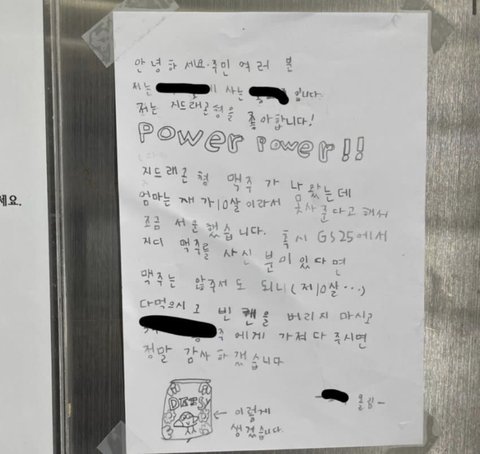 안녕하세요. 주민 여러 분
저는 사는 입니다.
저는 지드래곤형을 좋아합니다!
Power Power!!
지드래곤 형 맥주가 나왔는데
엄마는 제가 10살이라서 못사준다고 해서
조금 서운했습니다. 혹시 GS25에서
지디 맥주를 사신 분이 있다면
맥주는 안주셔도 되니(제10살...)
다먹으시고 빈 캔을 버리지 마시고
에게 가져다 주시면
정말 감사하겠습니다
DAISY
← 이렇게
생겼습니다.
올림-
세요.